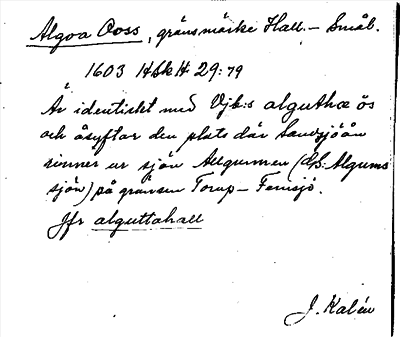 Algoa Ooss, gränsmärke Hall.- Smål.
1603 HSkH 29:79
Är identiskt med Vjb:s alguthæ ös
och åsyftar den plats där Sandsjöån
rinner ur sjön Algunnen (GS: Algums
sjön) på gränsen Torup - Femsjö.
Jfr alguttahall
J. Kalén